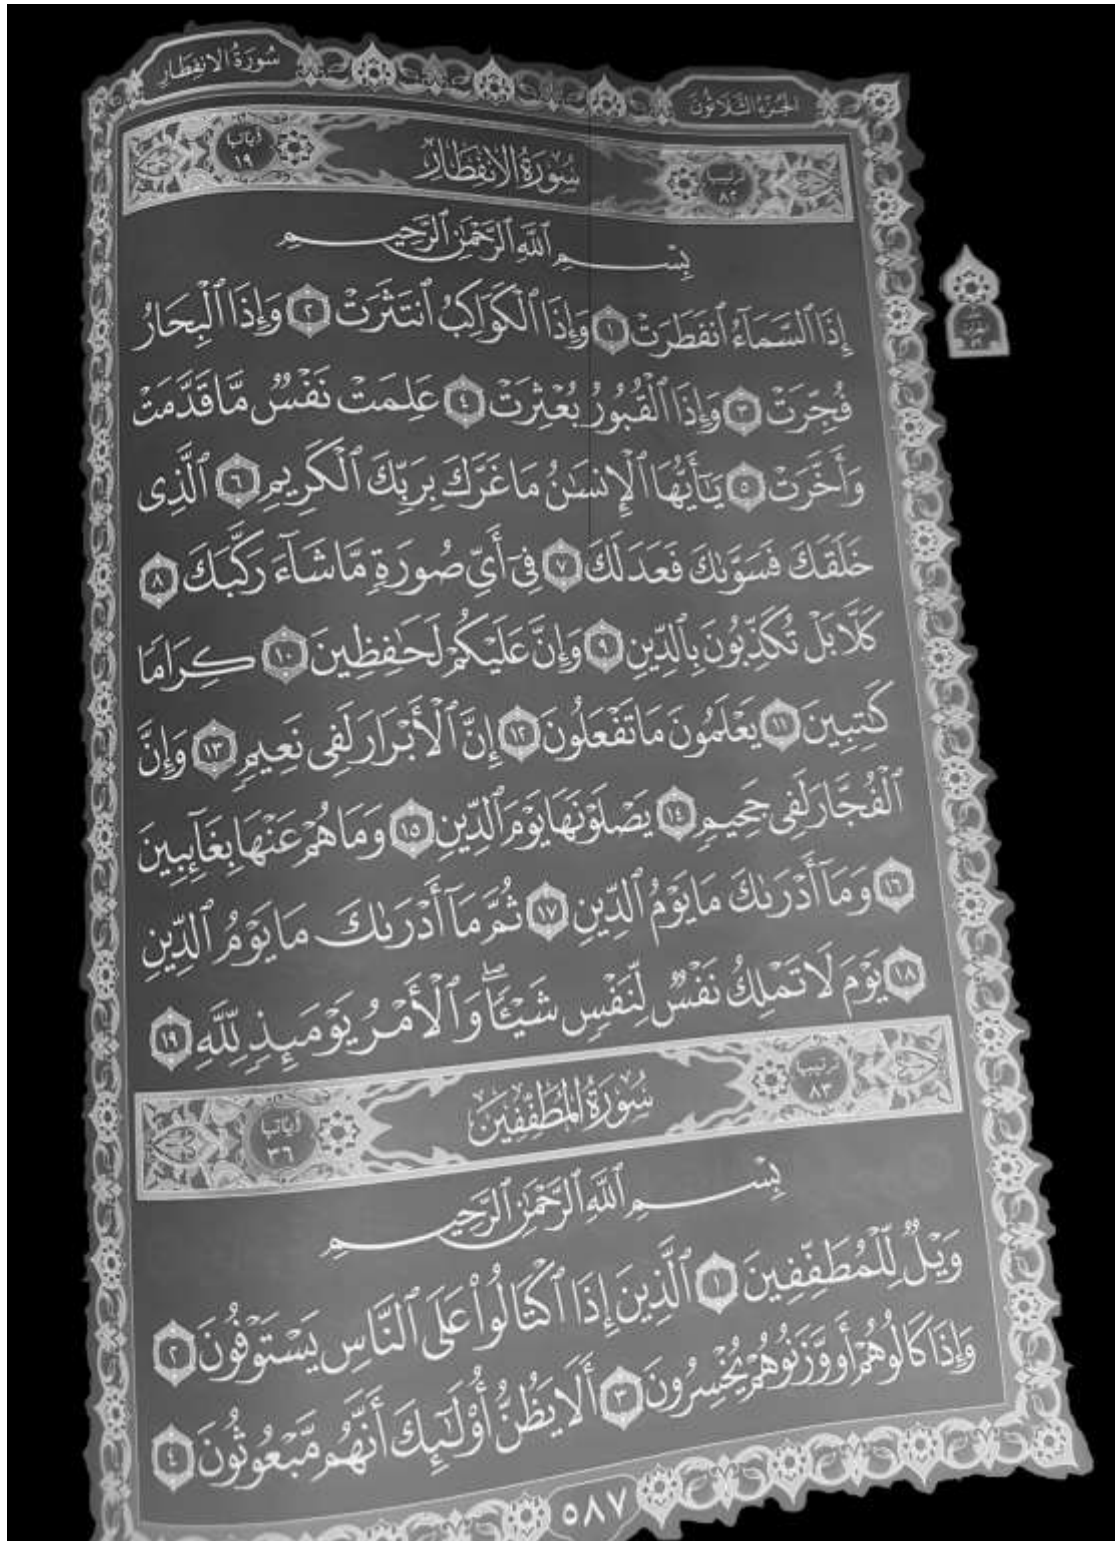 سُورَةُ الانفِطَار
الجُزءُ الثَّلَاثُونَ
آيَاتُهَا ١٩
سُورَةُ الانفِطَارِ
تَرتيبُهَا ٨٢
بِسْمِ ٱللَّهِ ٱلرَّحْمَٰنِ ٱلرَّحِيمِ
إِذَا ٱلسَّمَآءُ ٱنفَطَرَتْ ١ وَإِذَا ٱلْكَوَاكِبُ ٱنتَثَرَتْ ٢ وَإِذَا ٱلْبِحَارُ
فُجِّرَتْ ٣ وَإِذَا ٱلْقُبُورُ بُعْثِرَتْ ٤ عَلِمَتْ نَفْسٌ مَّا قَدَّمَتْ
وَأَخَّرَتْ ٥ يَٰٓأَيُّهَا ٱلْإِنسَٰنُ مَا غَرَّكَ بِرَبِّكَ ٱلْكَرِيمِ ٦ ٱلَّذِى
خَلَقَكَ فَسَوَّىٰكَ فَعَدَلَكَ ٧ فِىٓ أَىِّ صُورَةٍ مَّا شَآءَ رَكَّبَكَ ٨
كَلَّا بَلْ تُكَذِّبُونَ بِٱلدِّينِ ٩ وَإِنَّ عَلَيْكُمْ لَحَٰفِظِينَ ١٠ كِرَامًا
كَٰتِبِينَ ١١ يَعْلَمُونَ مَا تَفْعَلُونَ ١٢ إِنَّ ٱلْأَبْرَارَ لَفِى نَعِيمٍ ١٣ وَإِنَّ
ٱلْفُجَّارَ لَفِى جَحِيمٍ ١٤ يَصْلَوْنَهَا يَوْمَ ٱلدِّينِ ١٥ وَمَا هُمْ عَنْهَا بِغَآئِبِينَ
١٦ وَمَآ أَدْرَىٰكَ مَا يَوْمُ ٱلدِّينِ ١٧ ثُمَّ مَآ أَدْرَىٰكَ مَا يَوْمُ ٱلدِّينِ
١٨ يَوْمَ لَا تَمْلِكُ نَفْسٌ لِّنَفْسٍ شَيْـًٔا ۖ وَٱلْأَمْرُ يَوْمَئِذٍ لِّلَّهِ ١٩
تَرتيبُهَا ٨٣
سُورَةُ المُطَفِّفِينَ
آيَاتُهَا ٣٦
بِسْمِ ٱللَّهِ ٱلرَّحْمَٰنِ ٱلرَّحِيمِ
وَيْلٌ لِّلْمُطَفِّفِينَ ١ ٱلَّذِينَ إِذَا ٱكْتَالُوا۟ عَلَى ٱلنَّاسِ يَسْتَوْفُونَ ٢
وَإِذَا كَالُوهُمْ أَو وَّزَنُوهُمْ يُخْسِرُونَ ٣ أَلَا يَظُنُّ أُو۟لَٰٓئِكَ أَنَّهُم مَّبْعُوثُونَ ٤
٥٨٧